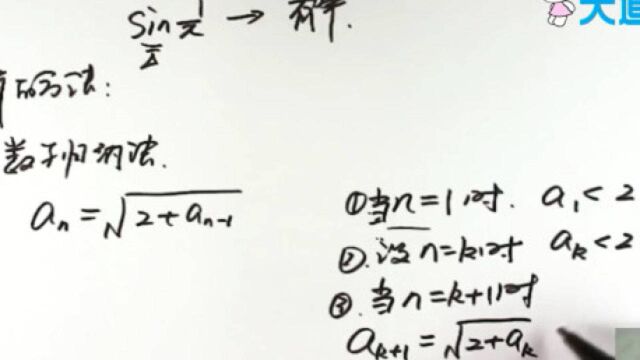 sin 1/x → 有界.
的方法:
数学归纳法.
aₙ = √(2+aₙ₋₁)
① 当n=1时. a₁<2
②. 设n=k时 aₖ<2
③. 当n=k+1时
aₖ₊₁ = √(2+aₖ)